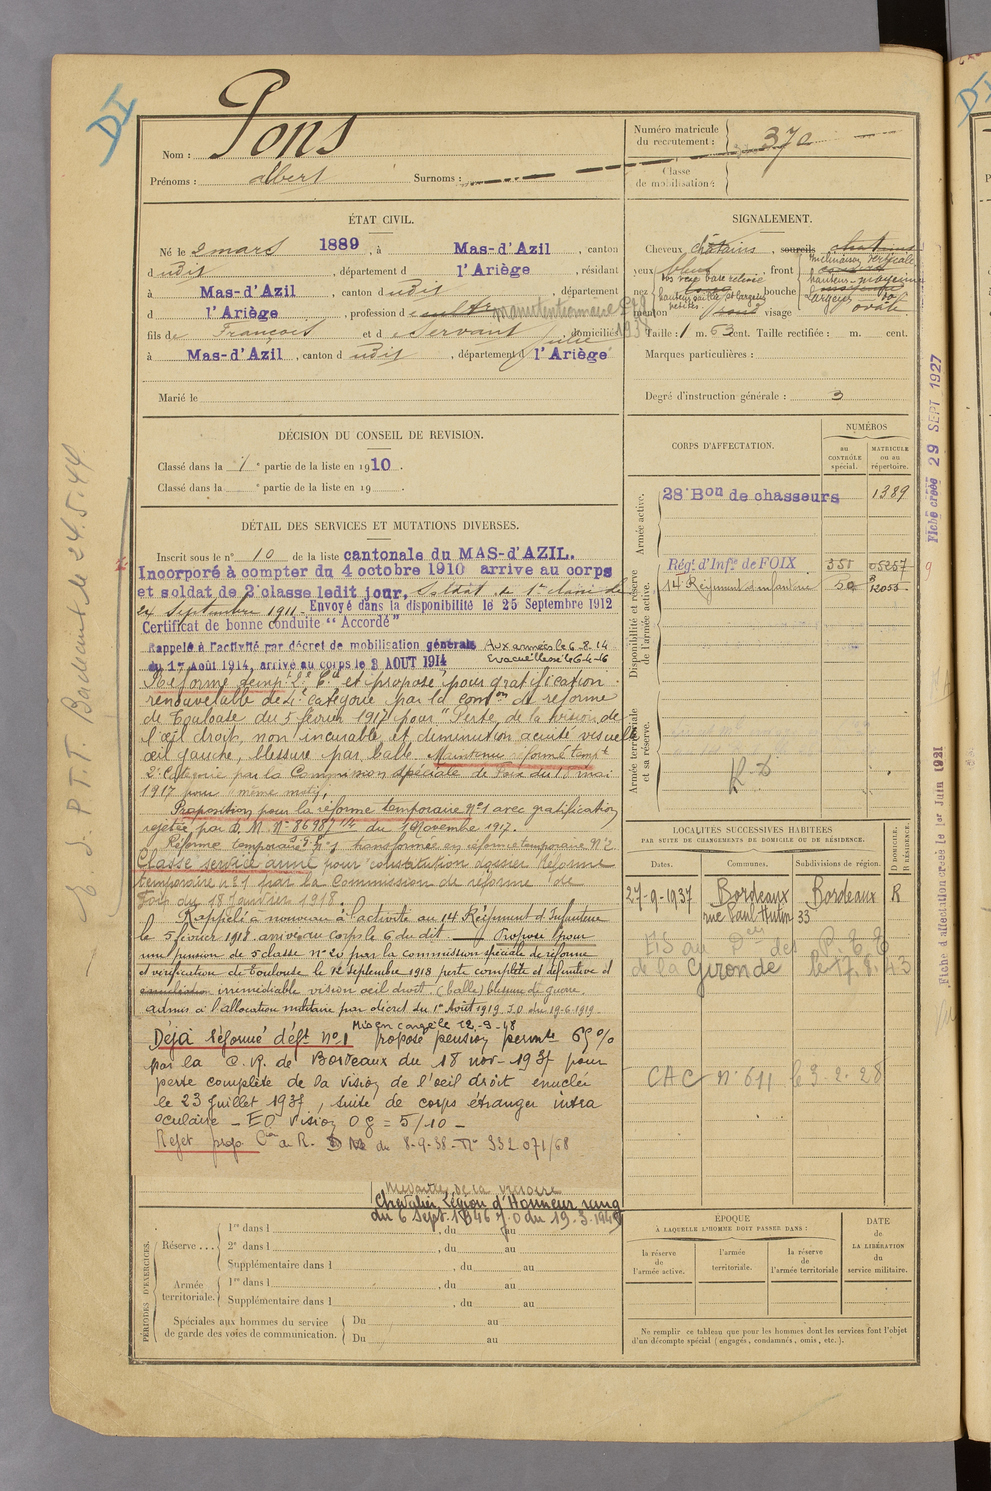 DI
Nom : Pons
Prénoms : albert Surnoms :
Numéro matricule
du recrutement : 370
Classe
de mobilisation :
ÉTAT CIVIL.
Né le 2 mars 1889, à Mas-d'Azil, canton
dudit, département d l'Ariège, résidant
à Mas-d'Azil, canton dudit département
d l'Ariège, profession de cultr manutentionnaire
fils de François et de Servant Julie, domiciliés
à Mas-d'Azil, canton dudit, département d l'Ariège
Marié le
SIGNALEMENT.
Cheveux châtains, sourcils
yeux bleus, front inclinaison verticale
nez base relevé, bouche hauteur moyenne
menton rond visage ovale
Taille : 1 m. 63 cent. Taille rectifiée : m. cent.
Marques particulières :
Degré d'instruction générale : 3
DÉCISION DU CONSEIL DE REVISION.
Classé dans la 1e partie de la liste en 1910.
Classé dans la e partie de la liste en 19
DÉTAIL DES SERVICES ET MUTATIONS DIVERSES.
Inscrit sous le n° 10 de la liste cantonale du MAS-d'AZIL.
Incorporé à compter du 4 octobre 1910 arrive au corps
et soldat de 2e classe ledit jour, Soldat de 1re classe le
24 Septembre 1911. Envoyé dans la disponibilité le 25 Septembre 1912
Certificat de bonne conduite "Accordé"
Rappelé à l'activité par décret de mobilisation générale Aux armées le 6-8-14
du 1er Août 1914, arrivé au corps le 3 AOUT 1914 Evacué le 6-4-16
Réformé tempre 2e Cie et proposé pour gratification
renouvelable de 4e catégorie par la comon de réforme
de Toulouse du 5 février 1917 pour "Perte, de la vision de
l'œil droit, non incurable et diminution acuité visuelle
œil gauche, blessure par balle. Maintenu réformé tempt
2e Catégorie par la Commission spéciale de Foix du 10 mai
1917 pour même motif,
Proposition pour la réforme temporaire N°1 avec gratification
rejetée par D. M. N° 86987 du 1 Novembre 1917.
Réforme temporaire n°1 transformée en réforme temporaire N°2
Classé service armé pour constatation agissir Réforme
temporaire n°1 par la Commission de réforme de
Foix du 18 Janvier 1918.
Rappelé à nouveau à l'activité au 14 Régiment d'Infanterie
le 5 février 1918. arrivé au corps le 6 du dit. Proposé pour
une pension de 5 classe N°20 par la commission spéciale de réforme
et vérification de Toulouse le 12 septembre 1918 perte complète et définitive et
irrémédiable vision œil droit. (balle) blessure de guerre.
admis à l'allocation militaire par décret du 1er Août 1919 J.O du 19-6-1919.
Mis en congé le 12-9-18
Déjà réformé déft n°1 proposé pension permte 65%
par la C.R. de Bordeaux du 18 nov- 1937 pour
perte complète de la vision de l'oeil droit enuclée
le 23 Juillet 1937, suite de corps étranger intra
oculaire - EO Vision OG = 5/10 -
Rejet propo Con de R. du 8-9-38 - N° 332 071/68
Médaille de la Victoire
Chevalier Légion d'Honneur rang
du 6 Sept. 1946 J.O du 19.3.1949
CORPS D'AFFECTATION.
NUMÉROS
au
CONTRÔLE
spécial.
MATRICULE
ou au
répertoire.
Armée active.
28e Bon de chasseurs 1389
Disponibilité et réserve
de l'armée active.
Régt d'Infie de FOIX 351 05257
14 Régiment d'infanterie 50 12053
Armée territoriale
et sa réserve.
R.D
LOCALITÉS SUCCESSIVES HABITÉES
PAR SUITE DE CHANGEMENTS DE DOMICILE OU DE RÉSIDENCE.
Dates. Communes. Subdivisions de région. D DOMICILE. R RÉSIDENCE.
27-9-1937 Bordeaux Bordeaux R
rue Paul-Hutin 33
des P.T.T
de la Gironde le 17.8.43
CAC N° 611 le 3-2-28
PÉRIODES D'EXERCICES.
Réserve ...
1re dans l , du au
2e dans l , du au
Supplémentaire dans l , du au
Armée
territoriale.
1re dans l , du au
Supplémentaire dans l , du au
Spéciales aux hommes du service
de garde des voies de communication.
Du au
Du au
ÉPOQUE
À LAQUELLE L'HOMME DOIT PASSER DANS :
la réserve
de
l'armée active.
l'armée
territoriale.
la réserve
de
l'armée territoriale
DATE
de
LA LIBÉRATION
du
service militaire.
Ne remplir ce tableau que pour les hommes dont les services font l'objet
d'un décompte spécial (engagés, condamnés, omis, etc.).
Fiche créée 29 SEPT 1927
Fiche d'affectation créée le 1er Juin 1931
24.5.44